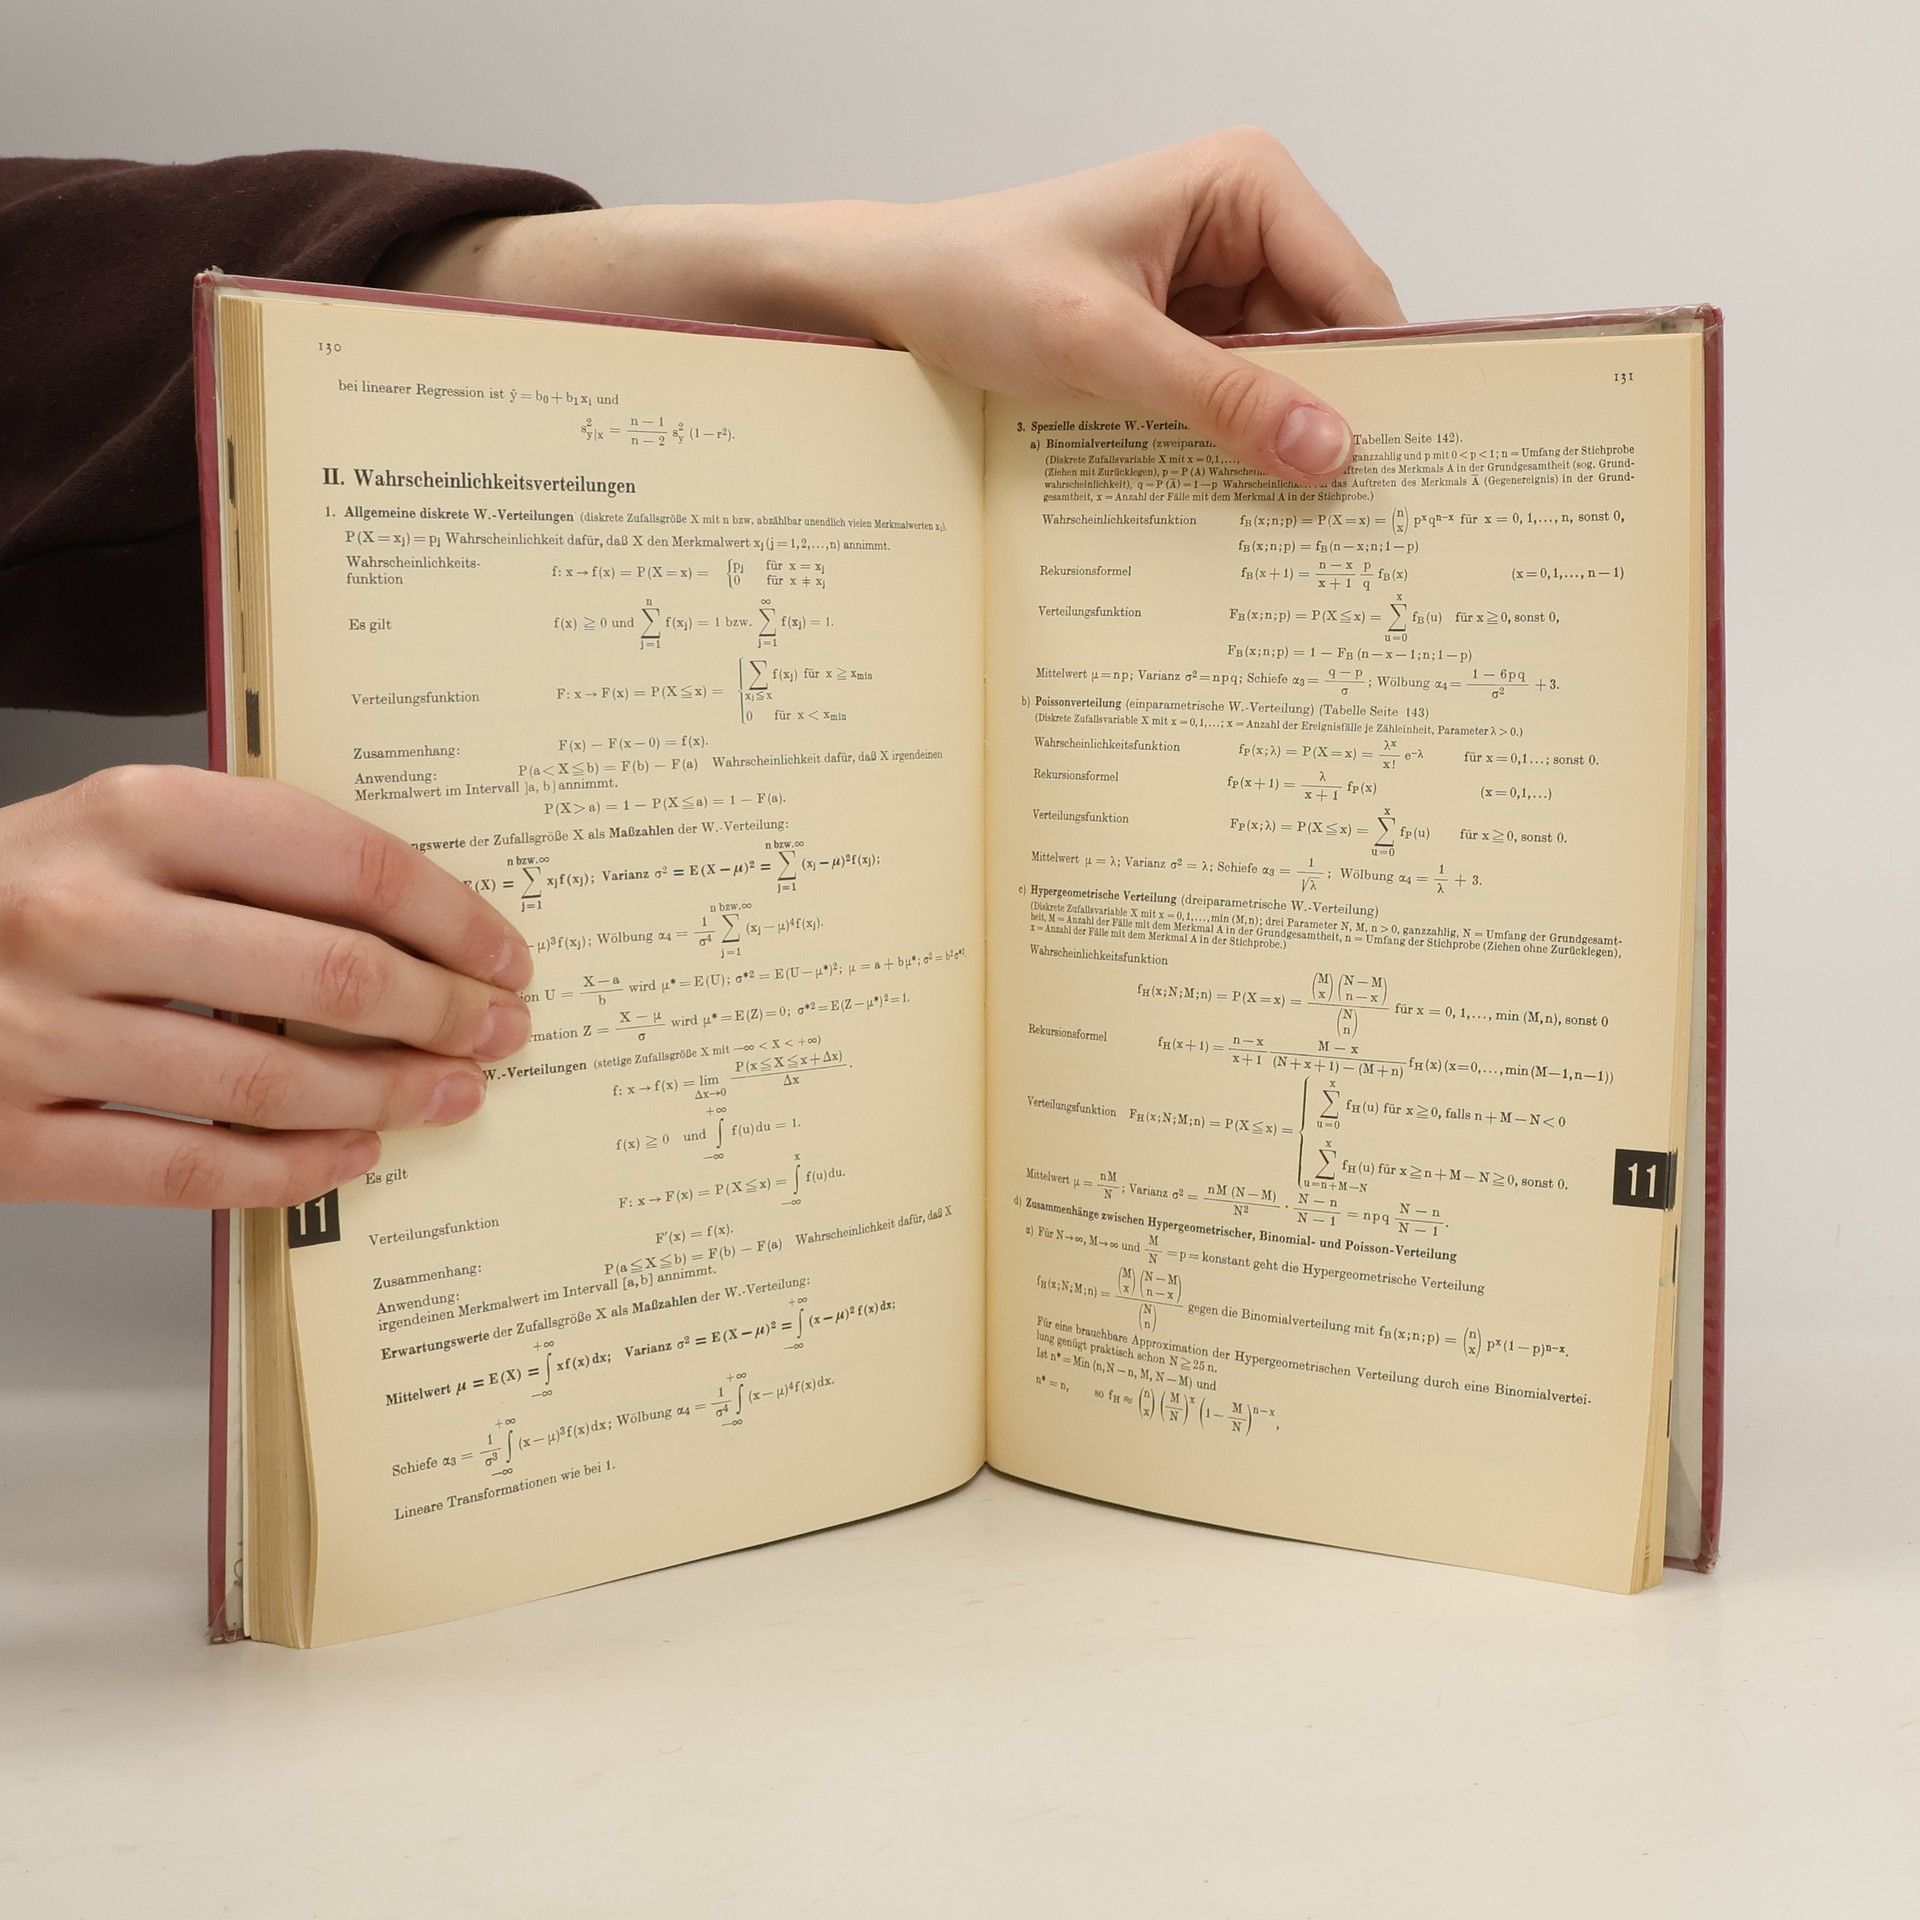 130
bei linearer Regression ist ŷ = b₀ + b₁xᵢ und
s²y|x = (n − 1)/(n − 2) s²y (1 − r²).
II. Wahrscheinlichkeitsverteilungen
1. Allgemeine diskrete W.-Verteilungen (diskrete Zufallsgröße X mit n bzw. abzählbar unendlich vielen Merkmalwerten xⱼ).
P(X = xⱼ) = pⱼ Wahrscheinlichkeit dafür, daß X den Merkmalwert xⱼ (j = 1, 2, ..., n) annimmt.
Wahrscheinlichkeits-
funktion f: x → f(x) = P(X = x) = { pⱼ für x = xⱼ
0 für x ≠ xⱼ
Es gilt f(x) ≧ 0 und ∑_{j=1}^{n} f(xⱼ) = 1 bzw. ∑_{j=1}^{∞} f(xⱼ) = 1.
Verteilungsfunktion F: x → F(x) = P(X ≦ x) = { ∑_{xⱼ≦x} f(xⱼ) für x ≧ xmin
0 für x < xmin
Zusammenhang: F(x) − F(x−0) = f(x).
Anwendung: P(a < X ≦ b) = F(b) − F(a) Wahrscheinlichkeit dafür, daß X irgendeinen
Merkmalwert im Intervall ]a, b] annimmt.
P(X > a) = 1 − P(X ≦ a) = 1 − F(a).
der Zufallsgröße X als Maßzahlen der W.-Verteilung:
(X) = ∑_{j=1}^{n bzw. ∞} xⱼf(xⱼ); Varianz σ² = E(X − μ)² = ∑_{j=1}^{n bzw. ∞} (xⱼ − μ)²f(xⱼ);
− μ)³f(xⱼ); Wölbung α₄ = 1/σ⁴ ∑_{j=1}^{n bzw. ∞} (xⱼ − μ)⁴f(xⱼ).
U = (X − a)/b wird μ* = E(U); σ*² = E(U − μ*)²; μ = a + bμ*; σ² = b²σ*².
Z = (X − μ)/σ wird μ* = E(Z) = 0; σ*² = E(Z − μ*)² = 1.
W.-Verteilungen (stetige Zufallsgröße X mit −∞ < X < +∞)
f: x → f(x) = lim_{Δx→0} P(x ≦ X ≦ x + Δx)/Δx.
Es gilt f(x) ≧ 0 und ∫_{−∞}^{+∞} f(u)du = 1.
Verteilungsfunktion F: x → F(x) = P(X ≦ x) = ∫_{−∞}^{x} f(u)du.
Zusammenhang: F′(x) = f(x).
Anwendung: P(a ≦ X ≦ b) = F(b) − F(a) Wahrscheinlichkeit dafür, daß X
irgendeinen Merkmalwert im Intervall [a, b] annimmt.
Erwartungswerte der Zufallsgröße X als Maßzahlen der W.-Verteilung:
Mittelwert μ = E(X) = ∫_{−∞}^{+∞} xf(x)dx; Varianz σ² = E(X − μ)² = ∫_{−∞}^{+∞} (x − μ)²f(x)dx;
Schiefe α₃ = 1/σ³ ∫_{−∞}^{+∞} (x − μ)³f(x)dx; Wölbung α₄ = 1/σ⁴ ∫_{−∞}^{+∞} (x − μ)⁴f(x)dx.
Lineare Transformationen wie bei 1.
11
131
3. Spezielle diskrete
Tabellen Seite 142).
a) Binomialverteilung
(Diskrete Zufallsvariable X mit x = 0, 1, ganzzahlig und p mit 0 < p < 1; n = Umfang der Stichprobe
(Ziehen mit Zurücklegen), p = P(A) des Merkmals A in der Grundgesamtheit (sog. Grund-
wahrscheinlichkeit), q = P(Ā) = 1 − p das Auftreten des Merkmals Ā (Gegenereignis) in der Grund-
gesamtheit, x = Anzahl der Fälle mit dem Merkmal A in der Stichprobe.)
Wahrscheinlichkeitsfunktion f_B(x;n;p) = P(X = x) = (n über x) pˣqⁿ⁻ˣ für x = 0, 1, ..., n, sonst 0,
f_B(x;n;p) = f_B(n − x;n;1 − p)
Rekursionsformel f_B(x + 1) = (n − x)/(x + 1) p/q f_B(x) (x = 0, 1, ..., n − 1)
Verteilungsfunktion F_B(x;n;p) = P(X ≦ x) = ∑_{u=0}^{x} f_B(u) für x ≧ 0, sonst 0,
F_B(x;n;p) = 1 − F_B(n − x − 1;n;1 − p)
Mittelwert μ = np; Varianz σ² = npq; Schiefe α₃ = (q − p)/σ; Wölbung α₄ = (1 − 6pq)/σ² + 3.
b) Poissonverteilung (einparametrische W.-Verteilung) (Tabelle Seite 143)
(Diskrete Zufallsvariable X mit x = 0, 1, ...; x = Anzahl der Ereignisfälle je Zähleinheit, Parameter λ > 0.)
Wahrscheinlichkeitsfunktion f_P(x;λ) = P(X = x) = λˣ/x! e^−λ für x = 0,1...; sonst 0.
Rekursionsformel f_P(x + 1) = λ/(x + 1) f_P(x) (x = 0, 1, ...)
Verteilungsfunktion F_P(x;λ) = P(X ≦ x) = ∑_{u=0}^{x} f_P(u) für x ≧ 0, sonst 0.
Mittelwert μ = λ; Varianz σ² = λ; Schiefe α₃ = 1/√λ; Wölbung α₄ = 1/λ + 3.
c) Hypergeometrische Verteilung (dreiparametrische W.-Verteilung)
(Diskrete Zufallsvariable X mit x = 0, 1, ..., min (M, n); drei Parameter N, M, n > 0, ganzzahlig, N = Umfang der Grundgesamt-
heit, M = Anzahl der Fälle mit dem Merkmal A in der Grundgesamtheit, n = Umfang der Stichprobe (Ziehen ohne Zurücklegen),
x = Anzahl der Fälle mit dem Merkmal A in der Stichprobe.)
Wahrscheinlichkeitsfunktion
f_H(x;N;M;n) = P(X = x) = (M über x)(N − M über n − x)/(N über n) für x = 0, 1, ..., min (M, n), sonst 0
Rekursionsformel f_H(x + 1) = (n − x)/(x + 1) (M − x)/((N + x + 1) − (M + n)) f_H(x) (x = 0, ..., min(M − 1, n − 1))
Verteilungsfunktion F_H(x;N;M;n) = P(X ≦ x) = { ∑_{u=0}^{x} f_H(u) für x ≧ 0, falls n + M − N < 0
∑_{u=n+M−N}^{x} f_H(u) für x ≧ n + M − N ≧ 0, sonst 0.
Mittelwert μ = nM/N; Varianz σ² = nM(N − M)/N² · (N − n)/(N − 1) = npq (N − n)/(N − 1).
d) Zusammenhänge zwischen Hypergeometrischer, Binomial- und Poisson-Verteilung
α) Für N→∞, M→∞ und M/N = p = konstant geht die Hypergeometrische Verteilung
f_H(x;N;M;n) = (M über x)(N − M über n − x)/(N über n) gegen die Binomialverteilung mit f_B(x;n;p) = (n über x) pˣ(1 − p)ⁿ⁻ˣ.
Für eine brauchbare Approximation der Hypergeometrischen Verteilung durch eine Binomialvertei-
lung genügt praktisch schon N ≧ 25 n.
Ist n* = Min (n, N − n, M, N − M) und
n* = n, so f_H ≈ (n über x) (M/N)ˣ (1 − M/N)ⁿ⁻ˣ,
11